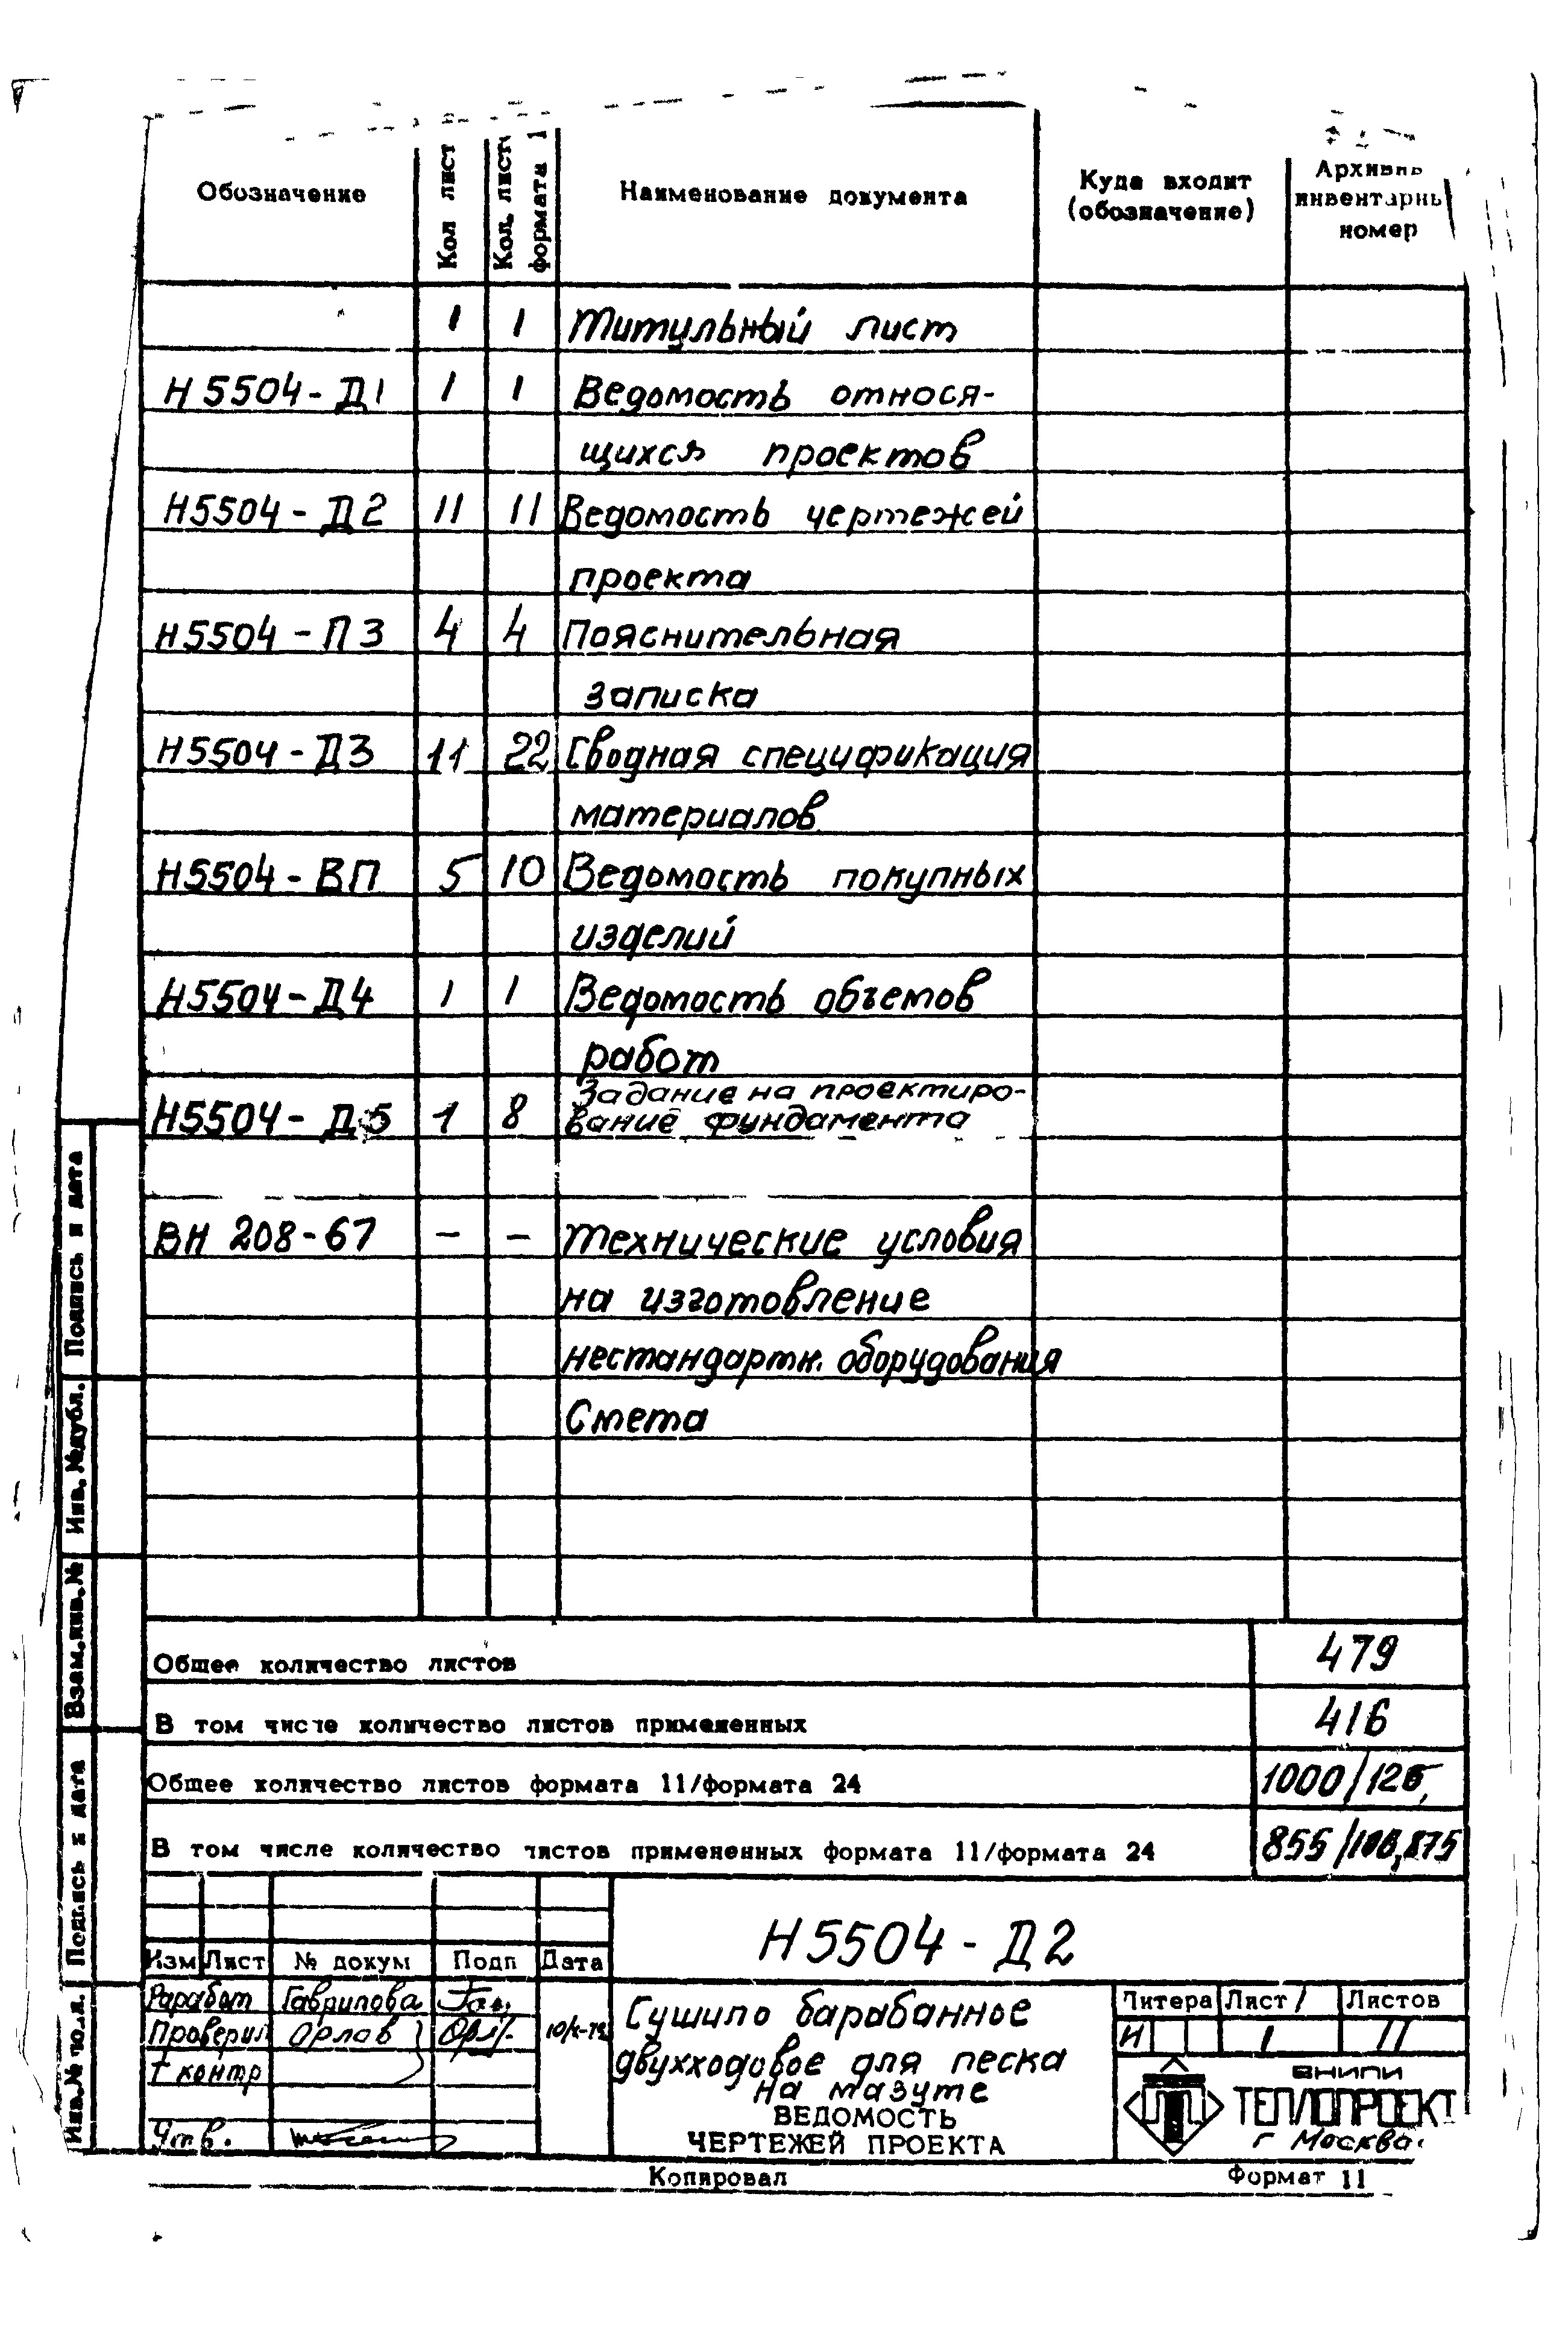 Обозначение
Кол лист
Кол. лист
формата 1
Наименование документа
Куда входит
(обозначение)
инвентарны
номер
1 1 Титульный лист
Н5504-Д1 1 1 Ведомость относя-
щихся проектов
Н5504-Д2 11 11 Ведомость чертежей
проекта
Н5504-ПЗ 4 4 Пояснительная
записка
Н5504-Д3 11 22 Сводная спецификация
материалов
Н5504-ВП 5 10 Ведомость покупных
изделий
Н5504-Д4 1 1 Ведомость объемов
работ
Н5504-Д5 1 8 Задание на проектиро-
вание фундамента
ВН 208-67 - - Технические условия
на изготовление
нестандартн. оборудования
Смета
Общее количество листов 479
В том числе количество листов примененных 416
Общее количество листов формата 11/формата 24 1000/
В том числе количество листов примененных формата 11/формата 24 855/
Н5504-Д2
Изм Лист № докум Подп Дата
Разработ Гаврилова Гав.
Проверил Орлов Орл
Т контр
Утв.
Сушило барабанное
двухходовое для песка
на мазуте
ВЕДОМОСТЬ
ЧЕРТЕЖЕЙ ПРОЕКТА
Литера Лист Листов
И 1 11
ВНИПИ
ТЕПЛОПРОЕКТ
г Москва
Копировал
Формат 11
Подпись и дата
Инв. № дубл.
Взам.инв.№
Подпись и дата
Инв.№ подл.